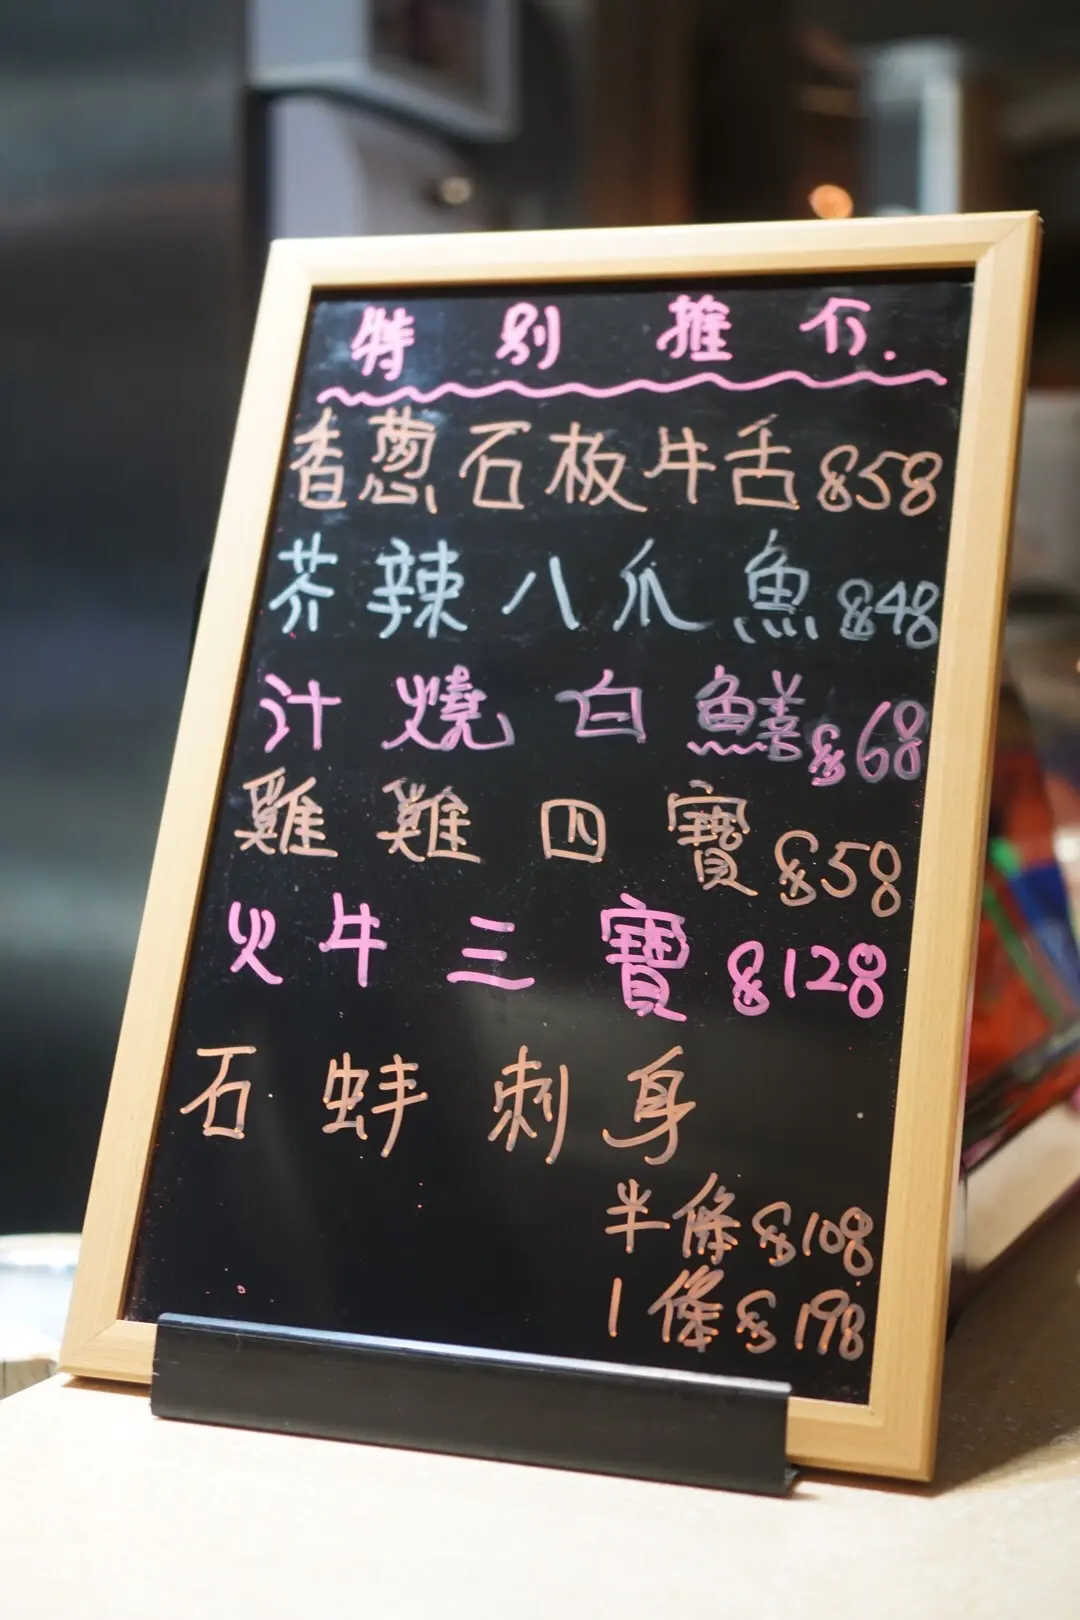 特別推介.
香蔥石板牛舌 $58
芥辣八爪魚 $48
汁燒白鱔 $68
雞雞四寶 $58
火牛三寶 $128
石蚌刺身
半條 $108
1條 $198